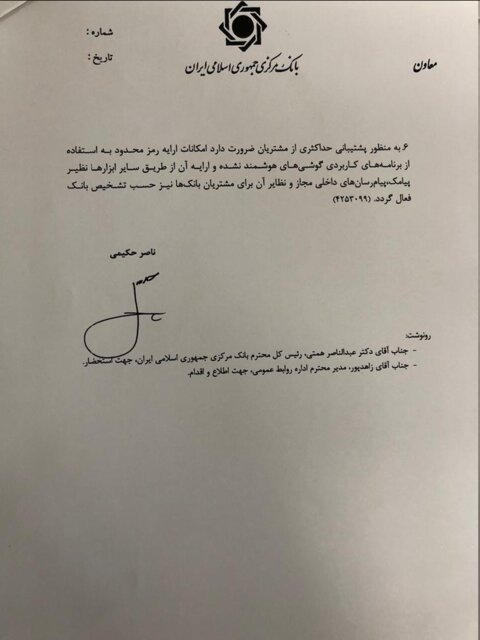 شماره :
تاریخ :
بانک مرکزی جمهوری اسلامی ایران
معاون
۶. به منظور پشتیبانی حداکثری از مشتریان ضرورت دارد امکانات ارایه رمز محدود به استفاده
از برنامه‌های کاربردی گوشی‌های هوشمند نشده و ارایه آن از طریق سایر ابزارها نظیر
پیامک،پیام‌رسان‌های داخلی مجاز و نظایر آن برای مشتریان بانک‌ها نیز حسب تشخیص بانک
فعال گردد. (۴۲۵۳۰۹۹)
ناصر حکیمی
رونوشت:
- جناب آقای دکتر عبدالناصر همتی، رئیس کل محترم بانک مرکزی جمهوری اسلامی ایران، جهت استحضار.
- جناب آقای زاهدپور، مدیر محترم اداره روابط عمومی، جهت اطلاع و اقدام.